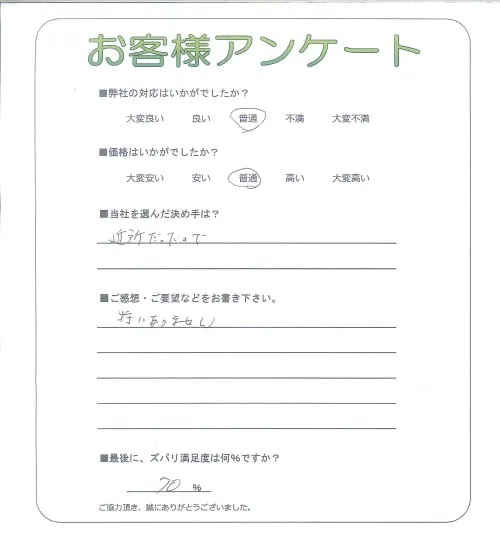 お客様アンケート
■弊社の対応はいかがでしたか？
大変良い 良い 普通 不満 大変不満
■価格はいかがでしたか？
大変安い 安い 普通 高い 大変高い
■当社を選んだ決め手は？
近所だったので
■ご感想・ご要望などをお書き下さい。
特にありません
■最後に、ズバリ満足度は何％ですか？
70 ％
ご協力頂き、誠にありがとうございました。